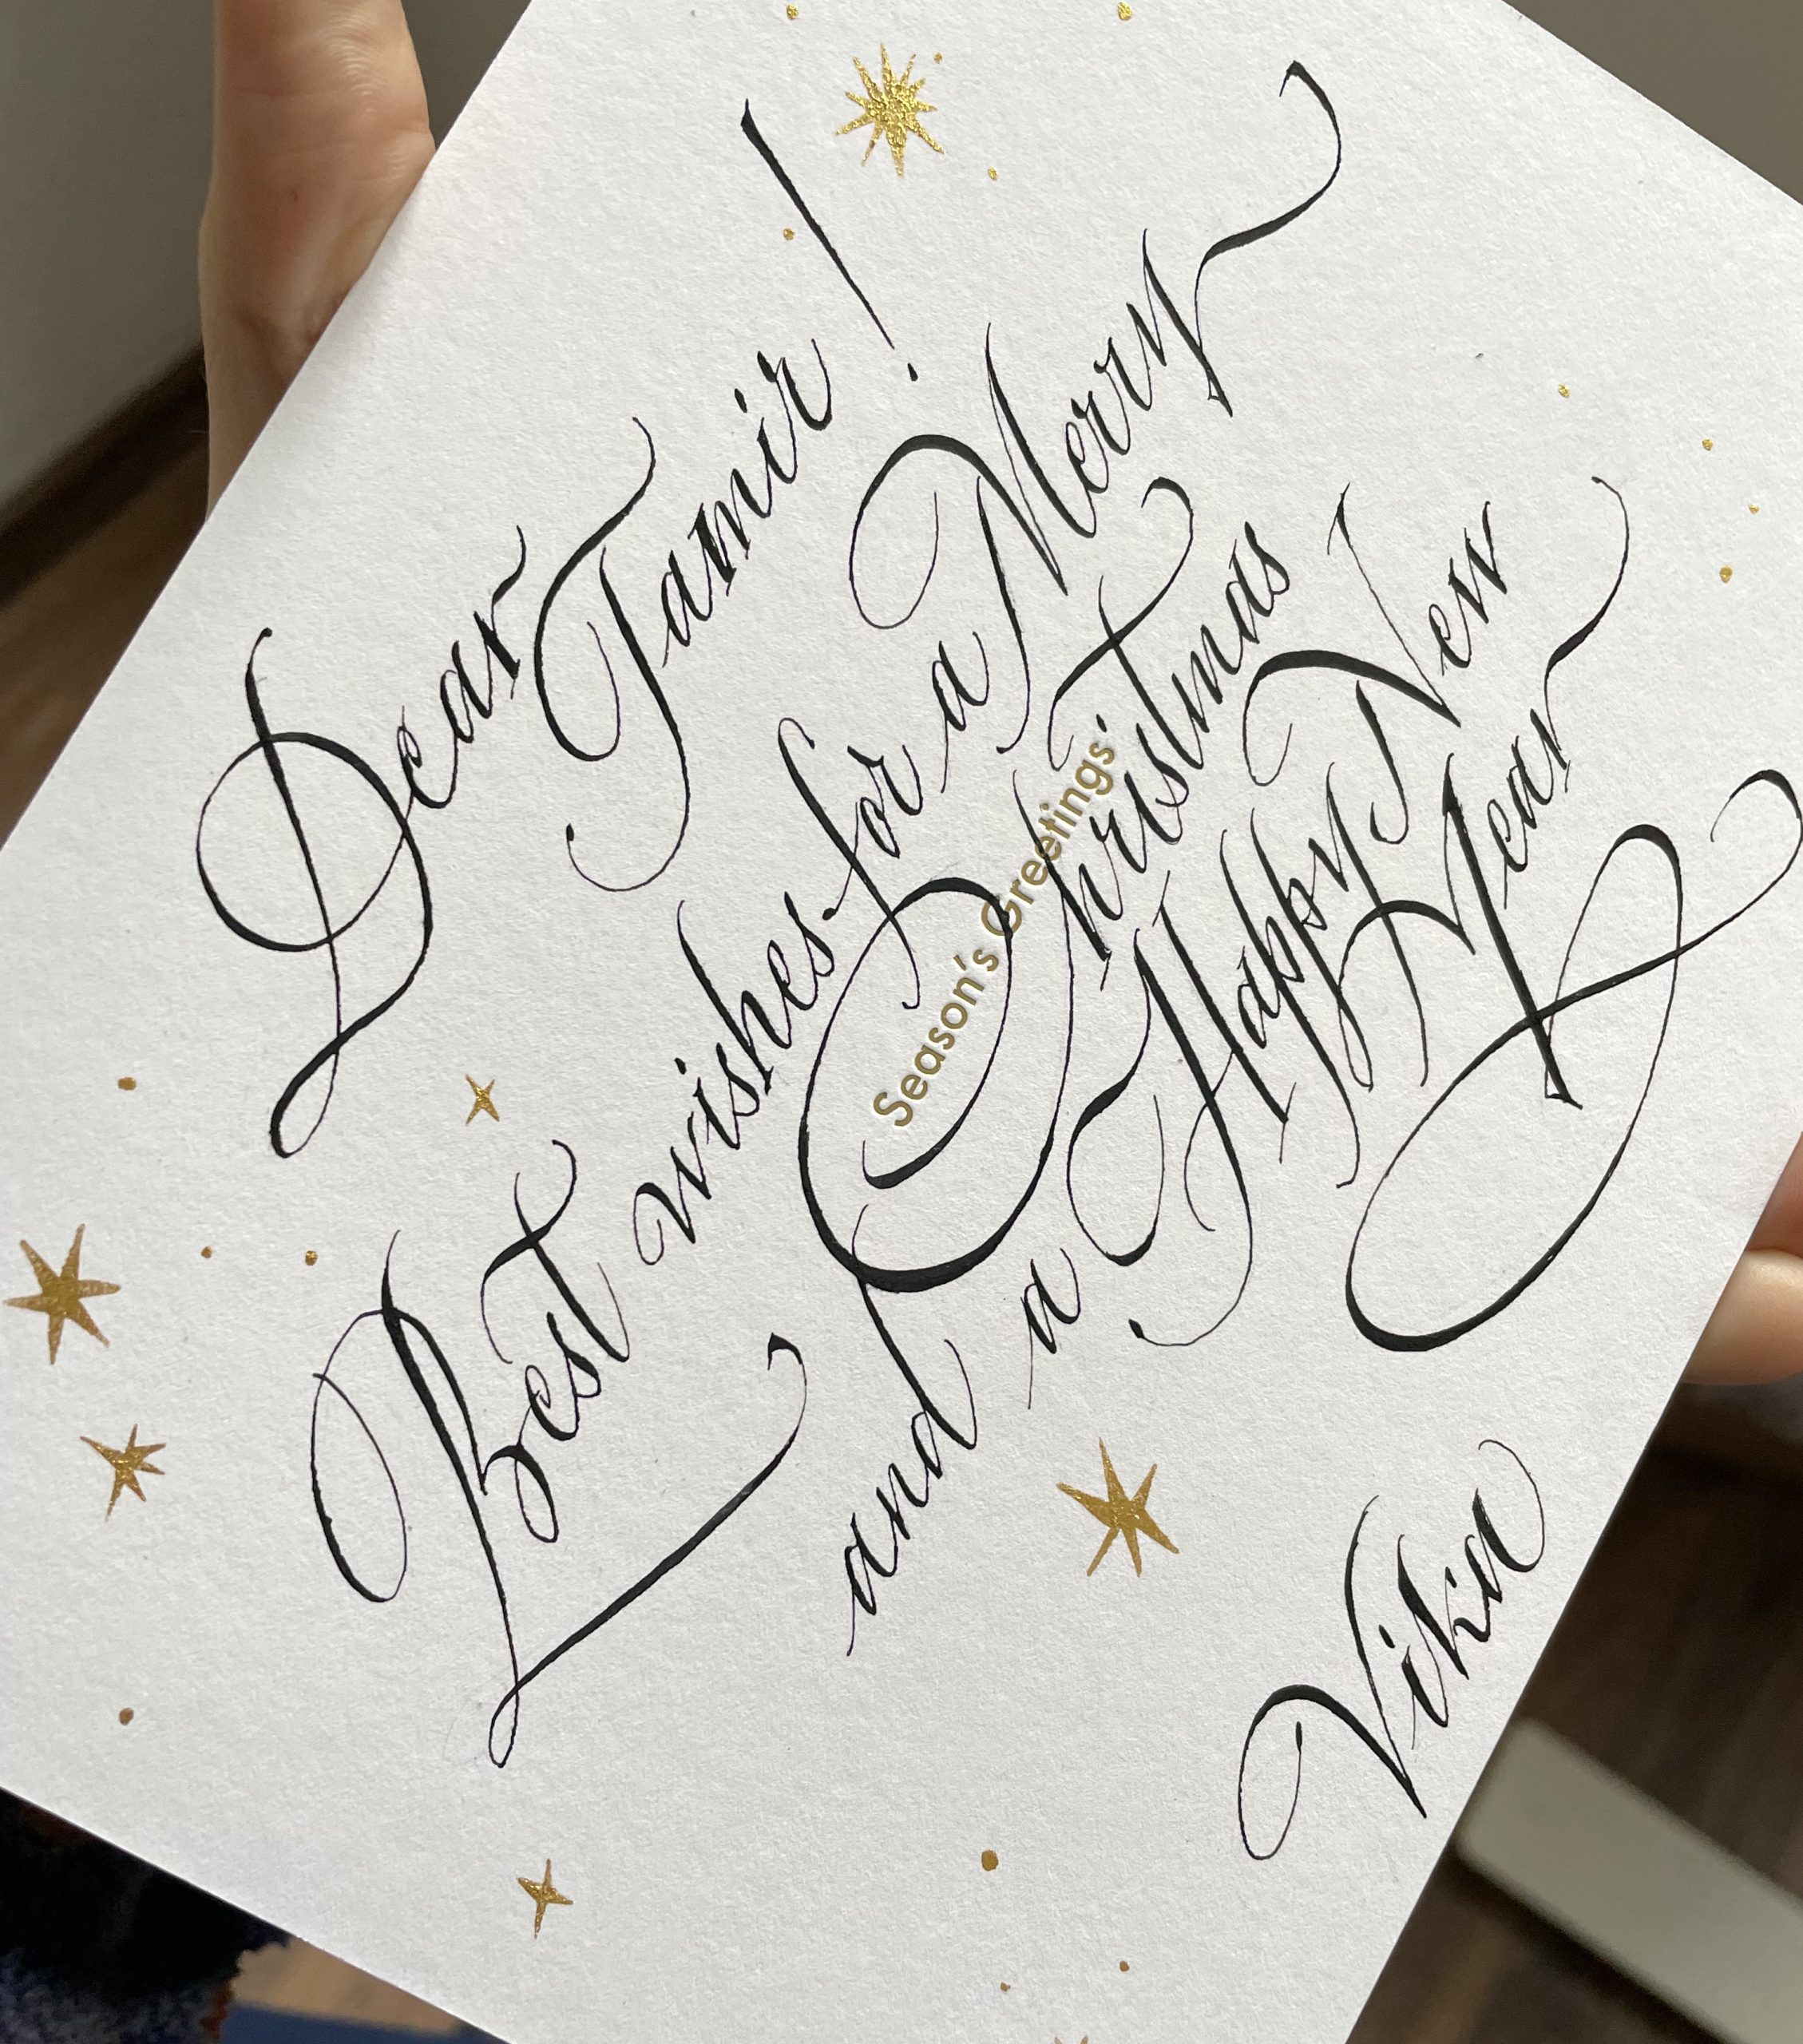 Dear Tamir!
Best wishes for a Merry
Season's Greetings
Christmas
and a Happy New
Year
Vika